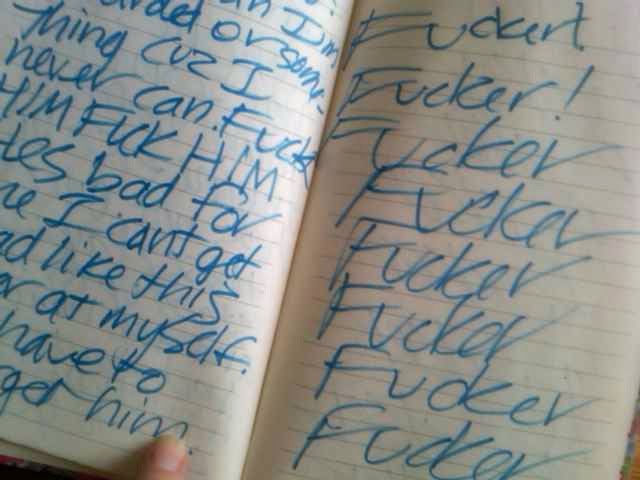 an I'm
or some-
thing cuz I
never can. Fuck
HIM FUCK HIM
bad for
I can't get
like this
at myself.
have to
him.
Fucker!
Fucker!
Fucker
Fucker
Fucker
Fucker
Fucker
Fucker